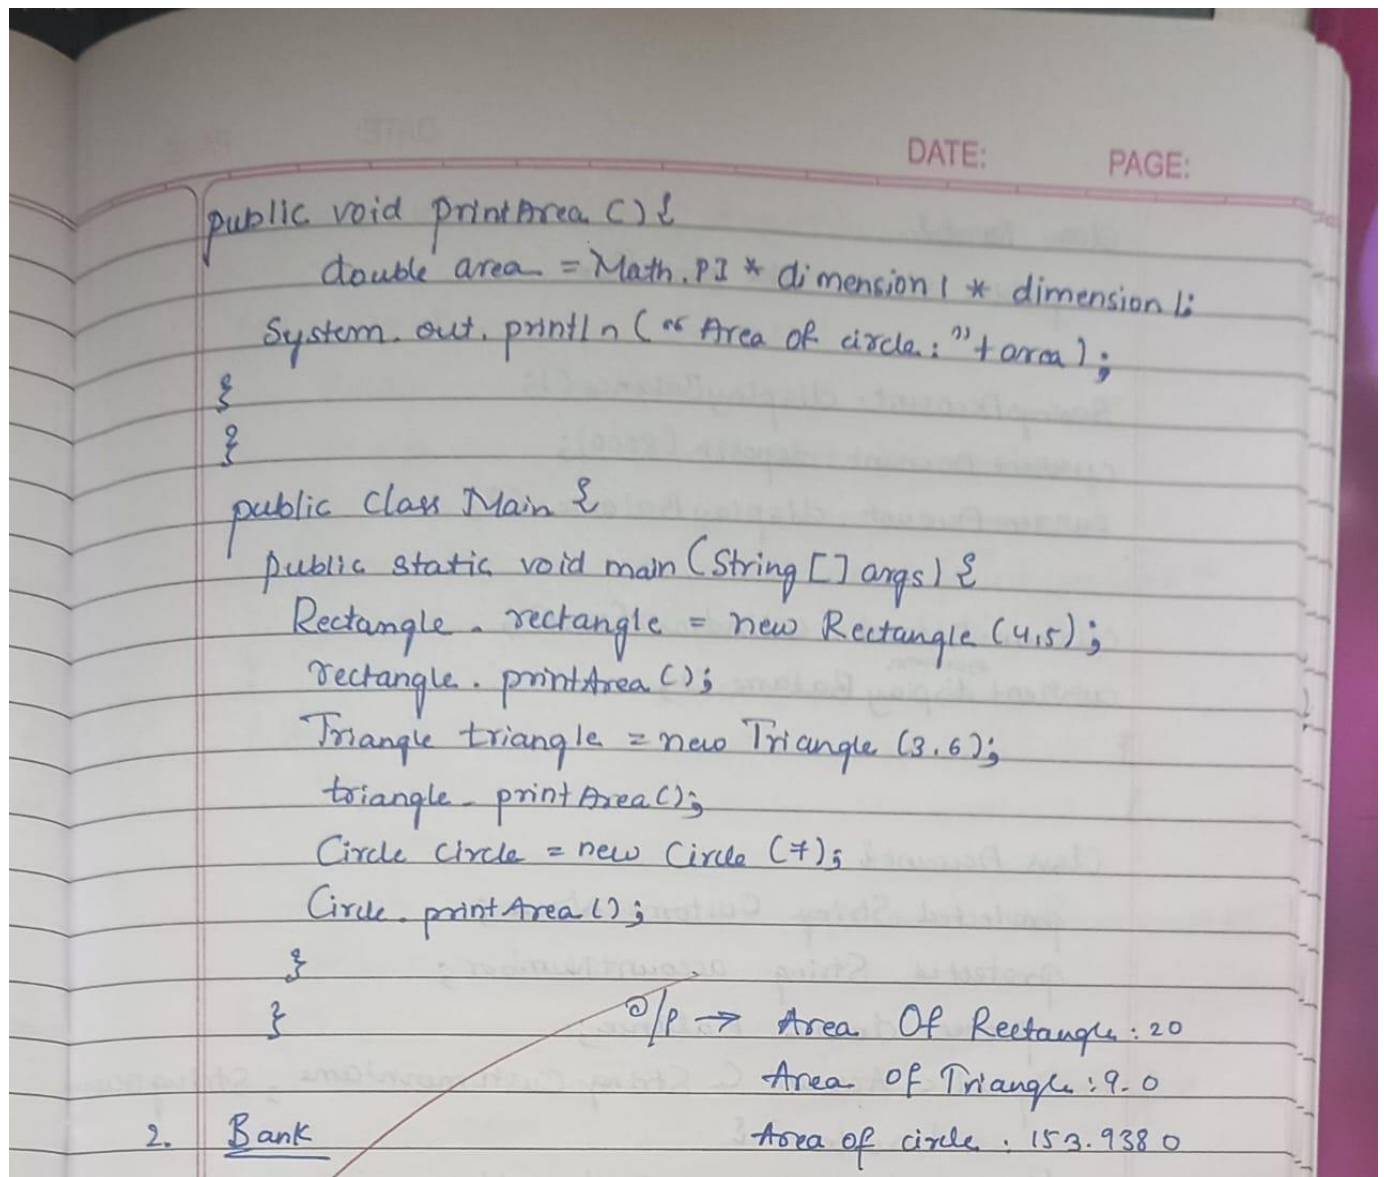 DATE: PAGE:
public void printArea () {
double area = Math.PI * dimension1 * dimension1;
System.out.println ( " Area of circle : " + area ) ;
}
}
public class Main {
public static void main (String [] args) {
Rectangle . rectangle = new Rectangle (4,5) ;
rectangle . printArea () ;
Triangle triangle = new Triangle (3.6) ;
triangle . printArea () ;
Circle circle = new Circle (7) ;
Circle . printArea () ;
}
} O/p → Area Of Rectangle : 20
Area of Triangle : 9.0
2. Bank Area of circle : 153.9380